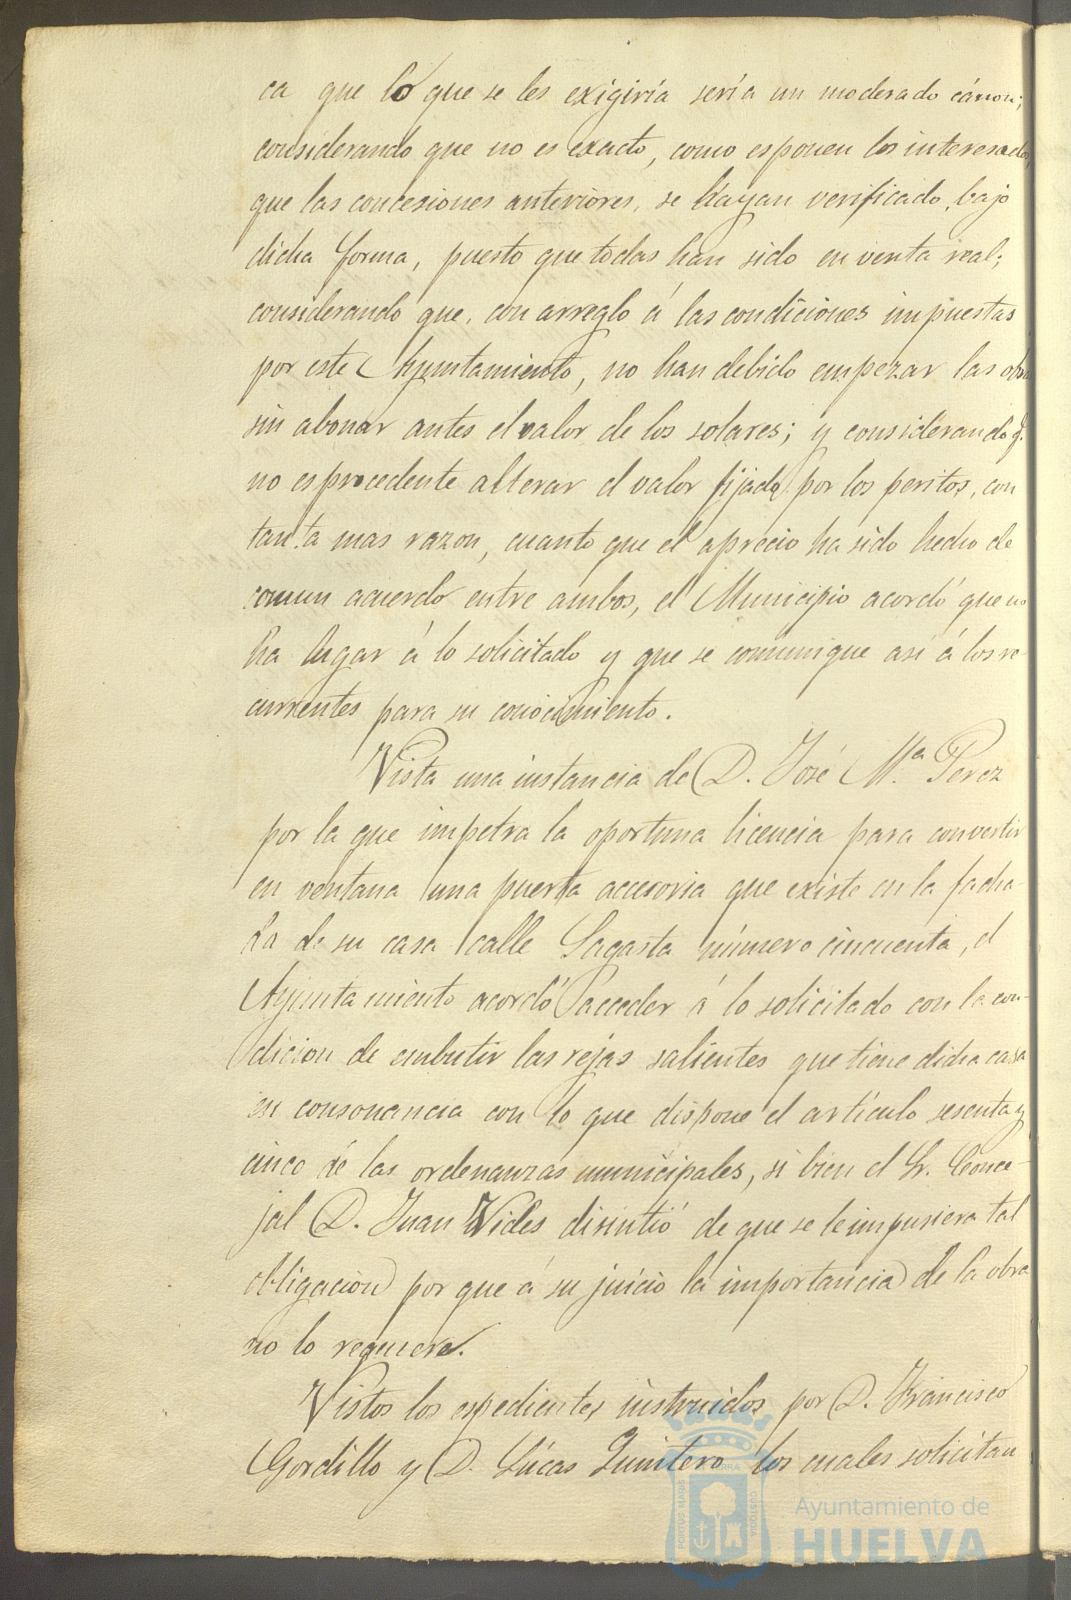 ca que lo que se les exigiría sería un moderado cánon;
considerando que no es exacto, como esponen los interesados,
que las concesiones anteriores, se hayan verificado, bajo
dicha forma, puesto que todas han sido en venta real;
considerando que, con arreglo á las condiciones impuestas
por este Ayuntamiento, no han debido empezar las obras
sin abonar antes el valor de los solares; y considerando q.
no es procedente alterar el valor fijado por los peritos, con
tanta mas razon, cuanto que el aprecio ha sido hecho de
comun acuerdo entre ambos, el Municipio acordó que no
ha lugar á lo solicitado y que se comunique asi á los re-
currentes para su conocimiento.
Vista una instancia de D. José M.ª Perez
por la que impetra la oportuna licencia para convertir
en ventana una puerta accesoria que existe en la facha
da de su casa calle Sagasta número cincuenta, el
Ayuntamiento acordó acceder á lo solicitado con la con-
dicion de embutir las rejas salientes que tiene dicha casa
en consonancia con lo que dispone el artículo sesenta y
cinco de las ordenanzas municipales, si bien el Sr. Conce-
jal D. Juan Vides disintió de que se le impusiera tal
obligacion por que á su juicio la importancia de la obra
no lo requiere.
Vistos los espedientes instruidos por D. Francisco
Gordillo y D. Lúcas Quintero los cuales solicitan
PORTUS MARIS
CUSTODIA
Ayuntamiento de
HUELVA